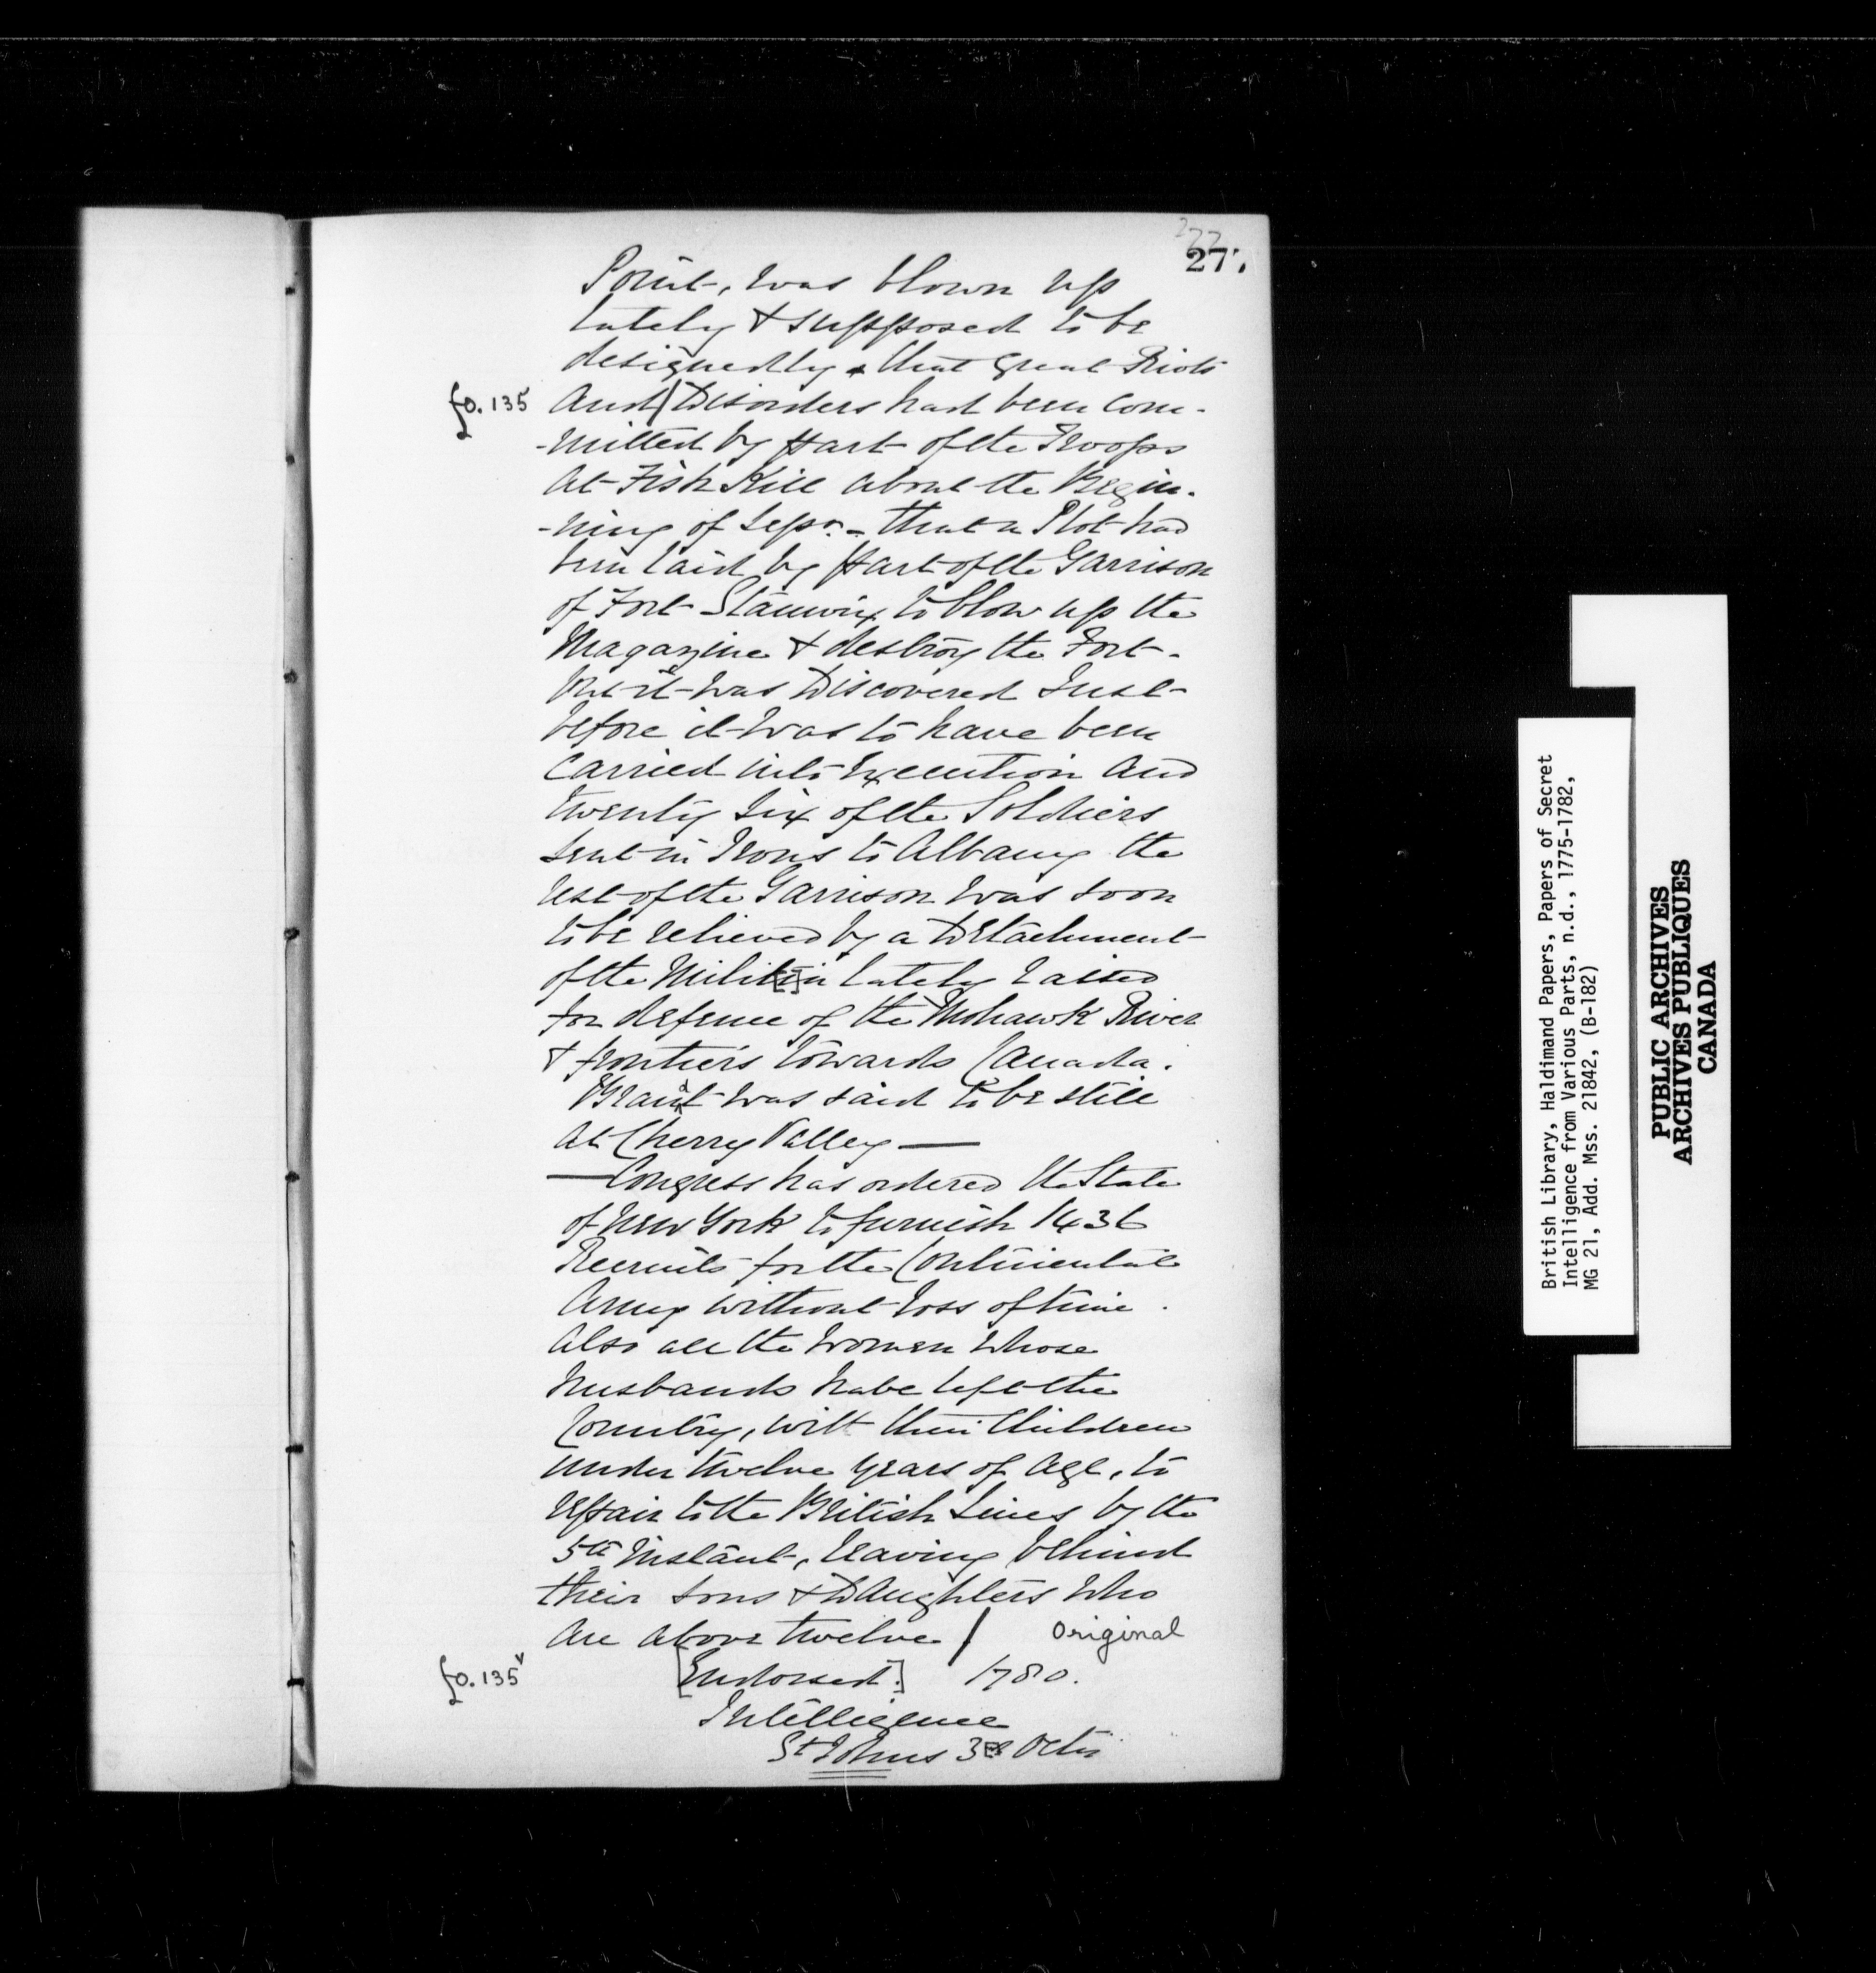 277
27
Point, was blown up
lately & supposed to be
designedly & that great Riots
fo. 135 And Disorders had been Com-
-mitted by part of the Troops
At Fish Kill about the Begin-
-ning of Sepr. - that a Plot had
been laid by part of the Garrison
of Fort Stanwix to blow up the
Magazine & destroy the Fort -
but it was Discovered Just
before it was to have been
Carried into Execution And
Twenty Six of the Soldiers
sent in Irons to Albany the
rest of the Garrison was soon
to be relieved by a Detachment
of the Militia lately raised
for defence of the Mohawk River
& frontiers towards Canada.
Brant was said to be still
at Cherry Valley —
— Congress has ordered the State
of New York to furnish 1436
Recruits for the Continental
Army without loss of time.
Also all the women whose
husbands have left the
Country, with their Children
under twelve years of age, to
repair to the British Lines by the
5th Instant, leaving behind
their sons & Daughters who
are above twelve / Original
fo. 135v [Endorsed.] 1780.
Intelligence
St Johns 3 Octr
British Library, Haldimand Papers, Papers of Secret
Intelligence from Various Parts, n.d., 1775-1782,
MG 21, Add. Mss. 21842, (B-182)
PUBLIC ARCHIVES
ARCHIVES PUBLIQUES
CANADA